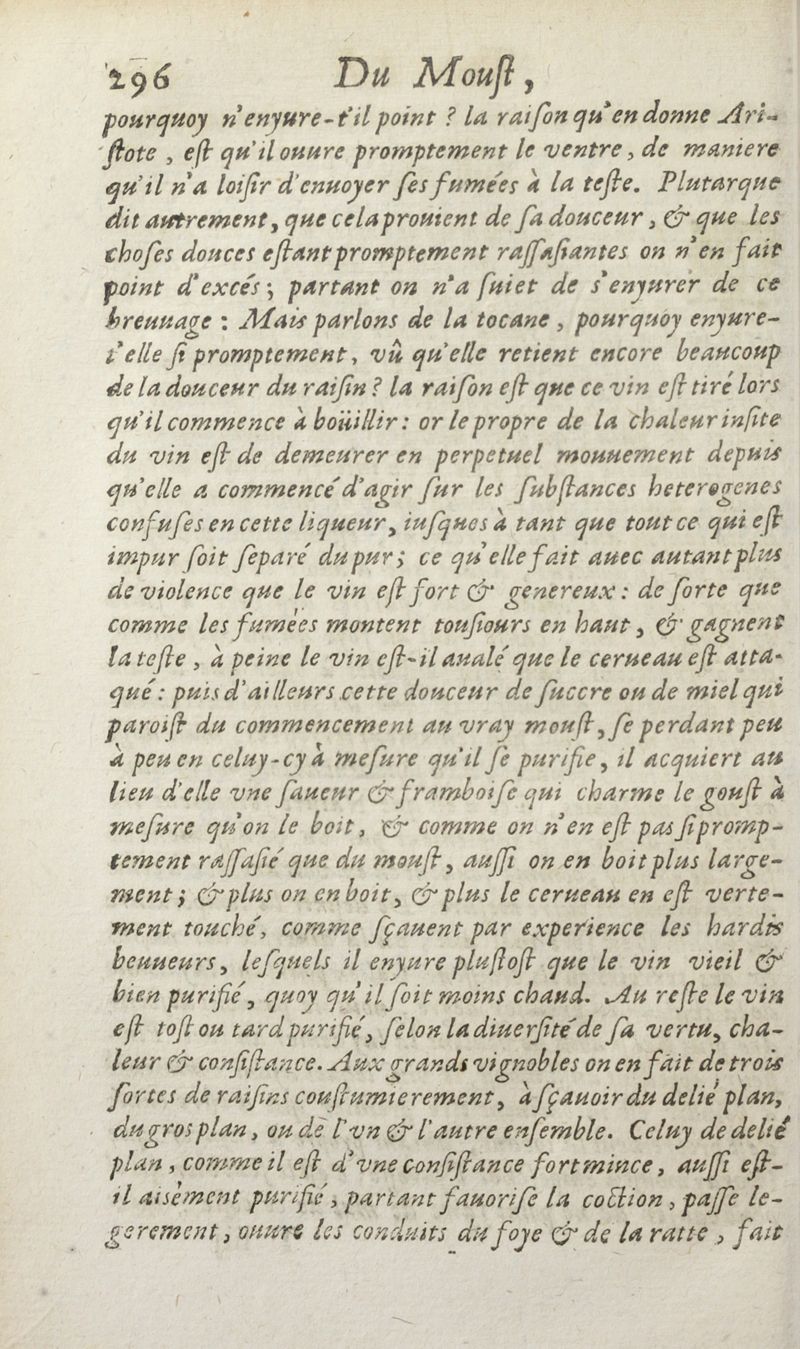 296 Du Mouſt,
pourquoy n'enyure-t'il point ? la raiſon qu'en donne Ari-
ſtote , eſt qu'il ouure promptement le ventre, de maniere
qu'il n'a loiſir d'enuoyer ſes fumées à la teſte. Plutarque
dit autrement, que cela prouient de ſa douceur , & que les
choſes douces eſtant promptement raſſaſiantes on n'en fait
point d'excés; partant on n'a ſuiet de s'enyurer de ce
breuuage : Mais parlons de la tocane , pourquoy enyure-
t'elle ſi promptement, vû qu'elle retient encore beaucoup
de la douceur du raiſin ? la raiſon eſt que ce vin eſt tiré lors
qu'il commence à boüillir : or le propre de la chaleur inſite
du vin eſt de demeurer en perpetuel mouuement depuis
qu'elle a commencé d'agir ſur les ſubſtances heterogenes
confuſes en cette liqueur, iuſques à tant que tout ce qui eſt
impur ſoit ſeparé du pur; ce qu'elle fait auec autant plus
de violence que le vin eſt fort & genereux : de ſorte que
comme les fumées montent touſiours en haut, & gagnent
la teſte , à peine le vin eſt-il aualé que le cerueau eſt atta-
qué : puis d'ailleurs cette douceur de ſuccre ou de miel qui
paroiſt du commencement au vray mouſt, ſe perdant peu
à peu en celuy-cy à meſure qu'il ſe purifie, il acquiert au
lieu d'elle vne ſaueur & framboiſe qui charme le gouſt à
meſure qu'on le boit, & comme on n'en eſt pas ſi promp-
tement raſſaſié que du mouſt, auſſi on en boit plus large-
ment; & plus on en boit, & plus le cerueau en eſt verte-
ment touché, comme ſçauent par experience les hardis
beuueurs, leſquels il enyure pluſtoſt que le vin vieil &
bien purifié, quoy qu'il ſoit moins chaud. Au reſte le vin
eſt toſt ou tard purifié, ſelon la diuerſité de ſa vertu, cha-
leur & conſiſtance. Aux grands vignobles on en fait de trois
ſortes de raiſins couſtumierement, à ſçauoir du delié plan,
du gros plan, ou de l'vn & l'autre enſemble. Celuy de delié
plan , comme il eſt d'vne conſiſtance fort mince, auſſi eſt-
il aisément purifié, partant fauoriſe la coction , paſſe le-
gerement, ouure les conduits du foye & de la ratte , fait